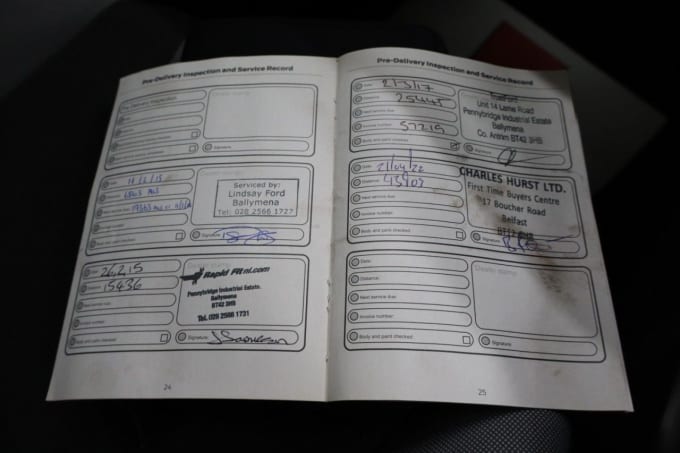 Pre-Delivery Inspection and Service Record
Pre Delivery Inspection
Signature:
Serviced by:
Lindsay Ford
Ballymena
Tel: 028 2566 1727
Body and paint checked
Signature:
26.2.15
15436
Next service due:
Invoice number:
Body and paint checked
Rapid Fitni.com
Pennybridge Industrial Estate.
Ballymena
BT42 3HB
Tel. 028 2566 1731
Signature:
24
Pre-Delivery Inspection and Service Record
Date:
21/3/17
Distance:
25445
Next service due:
Invoice number:
57215
Body and paint checked
Unit 14 Larne Road
Pennybridge Industrial Estate
Ballymena
Co. Antrim BT42 3HB
Signature:
Date:
21/04/22
Distance:
Next service due:
Invoice number:
Body and paint checked
CHARLES HURST LTD.
First Time Buyers Centre
17 Boucher Road
Belfast
Signature:
Date:
Distance:
Next service due:
Invoice number:
Body and paint checked
Dealer stamp
Signature:
25